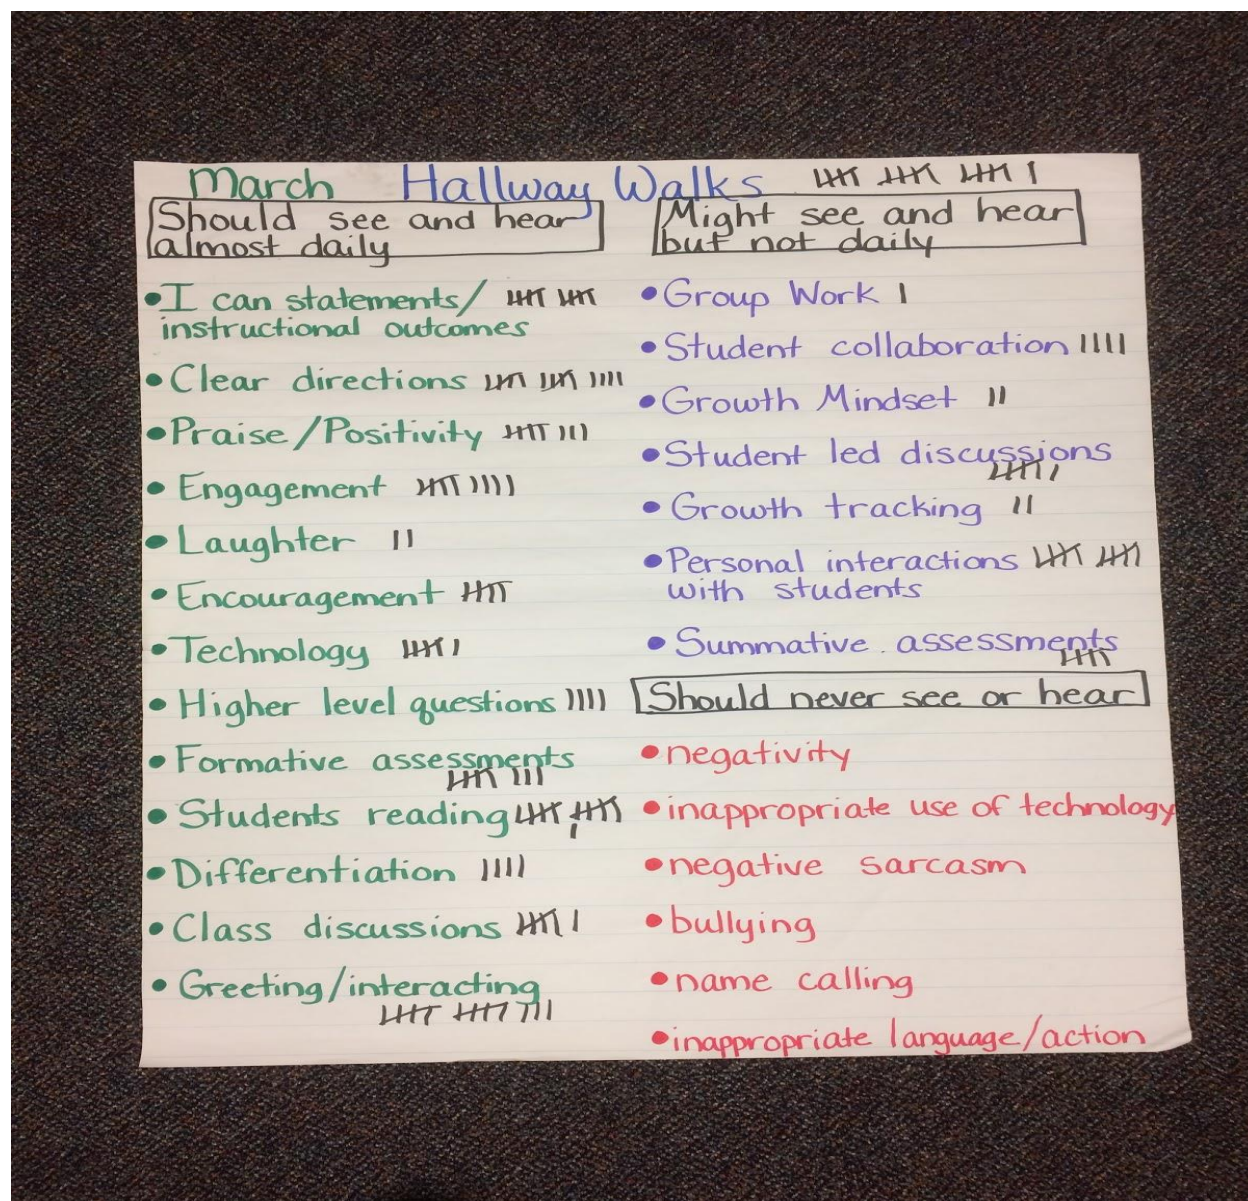 March Hallway Walks
Should see and hear
almost daily
• I can statements/
instructional outcomes
• Clear directions
• Praise/Positivity
• Engagement
• Laughter
• Encouragement
• Technology
• Higher level questions
• Formative assessments
• Students reading
• Differentiation
• Class discussions
• Greeting/interacting
Might see and hear
but not daily
• Group Work
• Student collaboration
• Growth Mindset
• Student led discussions
• Growth tracking
• Personal interactions
with students
• Summative assessments
Should never see or hear
• negativity
• inappropriate use of technology
• negative sarcasm
• bullying
• name calling
• inappropriate language/action